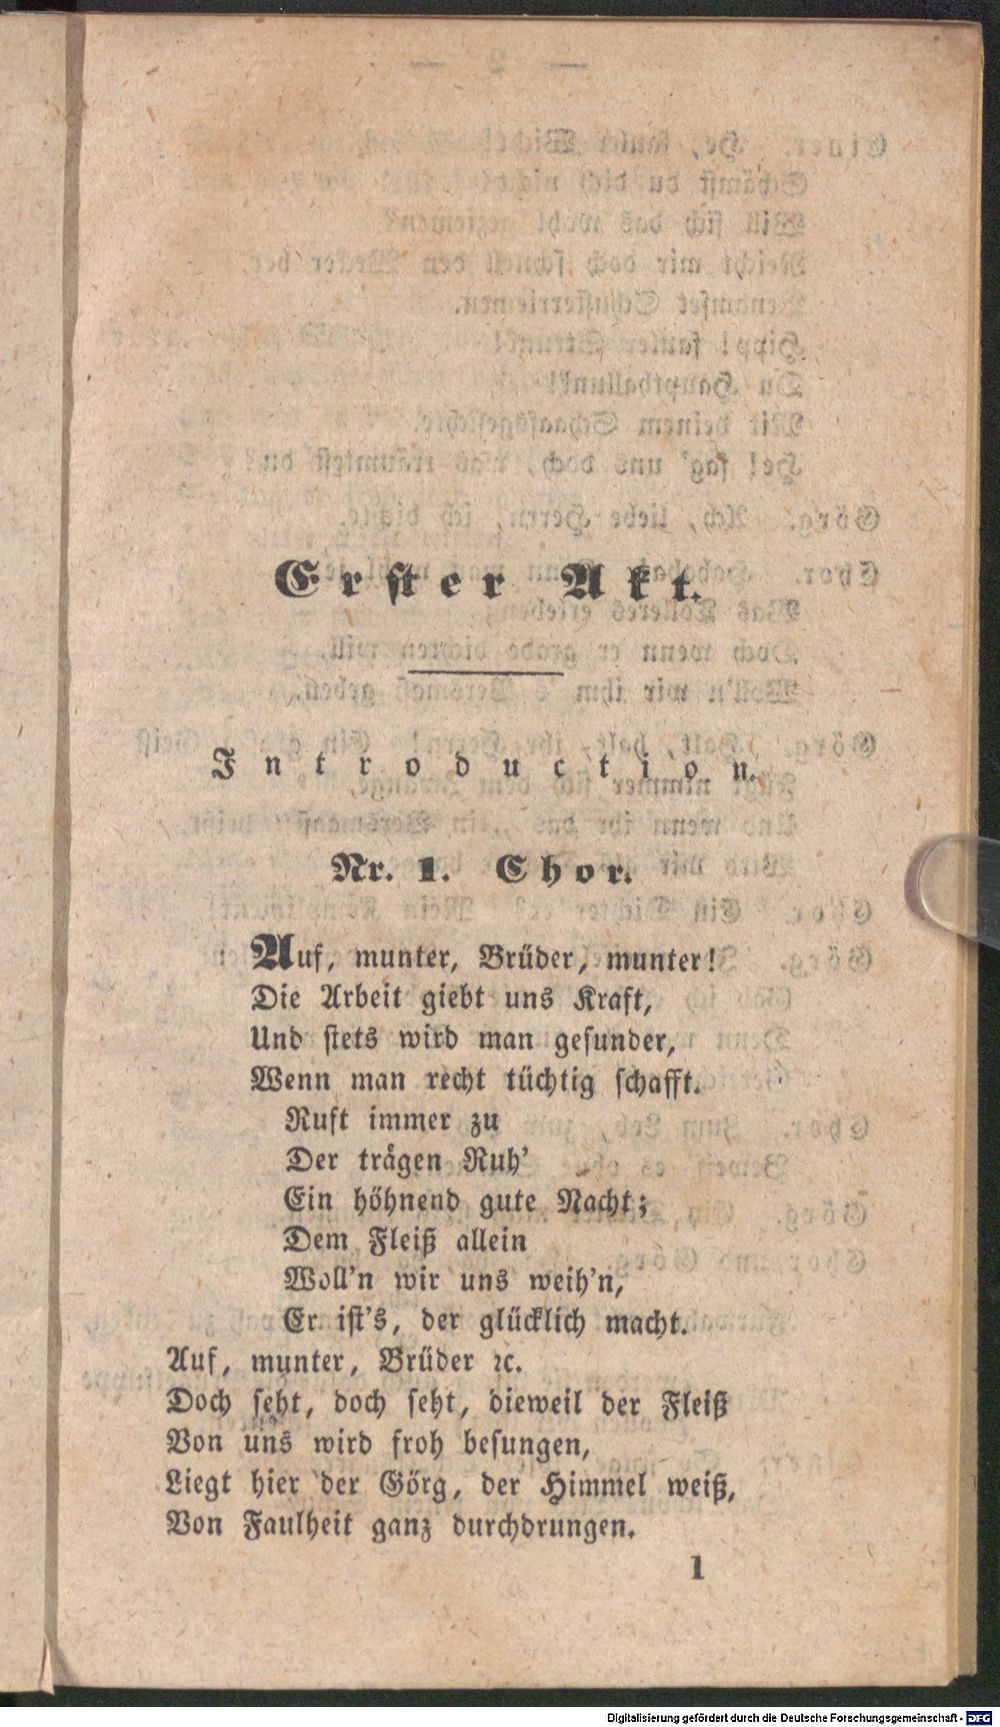 Erster Akt.
Introduction.
Nr. 1. Chor.
Auf, munter, Brüder, munter!
Die Arbeit giebt uns Kraft,
Und stets wird man gesunder,
Wenn man recht tüchtig schafft.
Ruft immer zu
Der trägen Ruh'
Ein höhnend gute Nacht;
Dem Fleiß allein
Woll'n wir uns weih'n,
Er ist's, der glücklich macht.
Auf, munter, Brüder ꝛc.
Doch seht, doch seht, dieweil der Fleiß
Von uns wird froh besungen,
Liegt hier der Görg, der Himmel weiß,
Von Faulheit ganz durchdrungen.
1
Digitalisierung gefördert durch die Deutsche Forschungsgemeinschaft - DFG